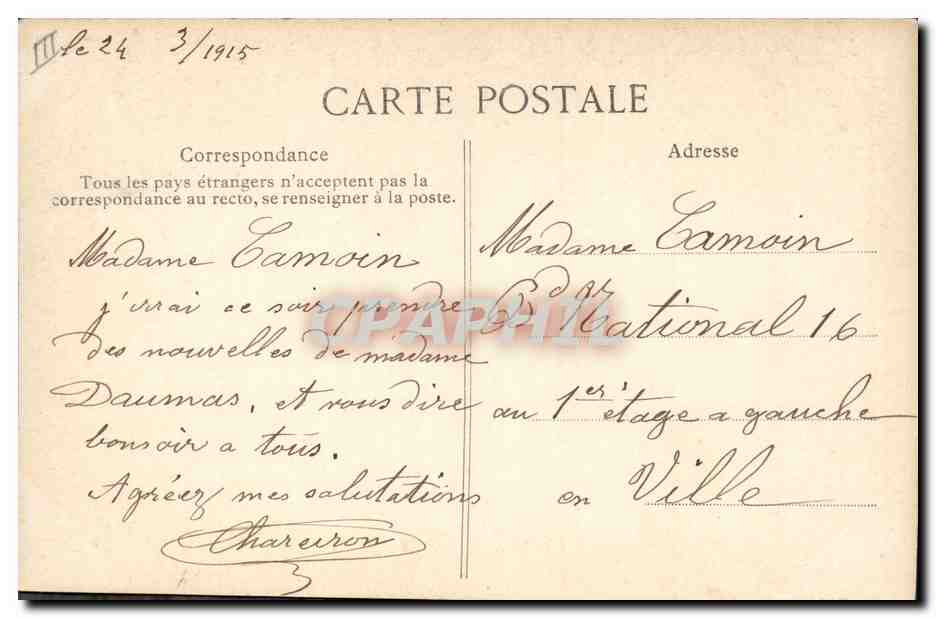 III le 24 3/1915
CARTE POSTALE
Correspondance
Tous les pays étrangers n'acceptent pas la
correspondance au recto, se renseigner à la poste.
Madame Tamoin
j'irrai ce soir prendre
des nouvelles de madame
Daumas, et vous dire
bonsoir a tous.
Agréez mes salutations
Chareiron
Adresse
Madame Tamoin
Bd National 16
au 1er étage a gauche
en Ville
CPAPHIL